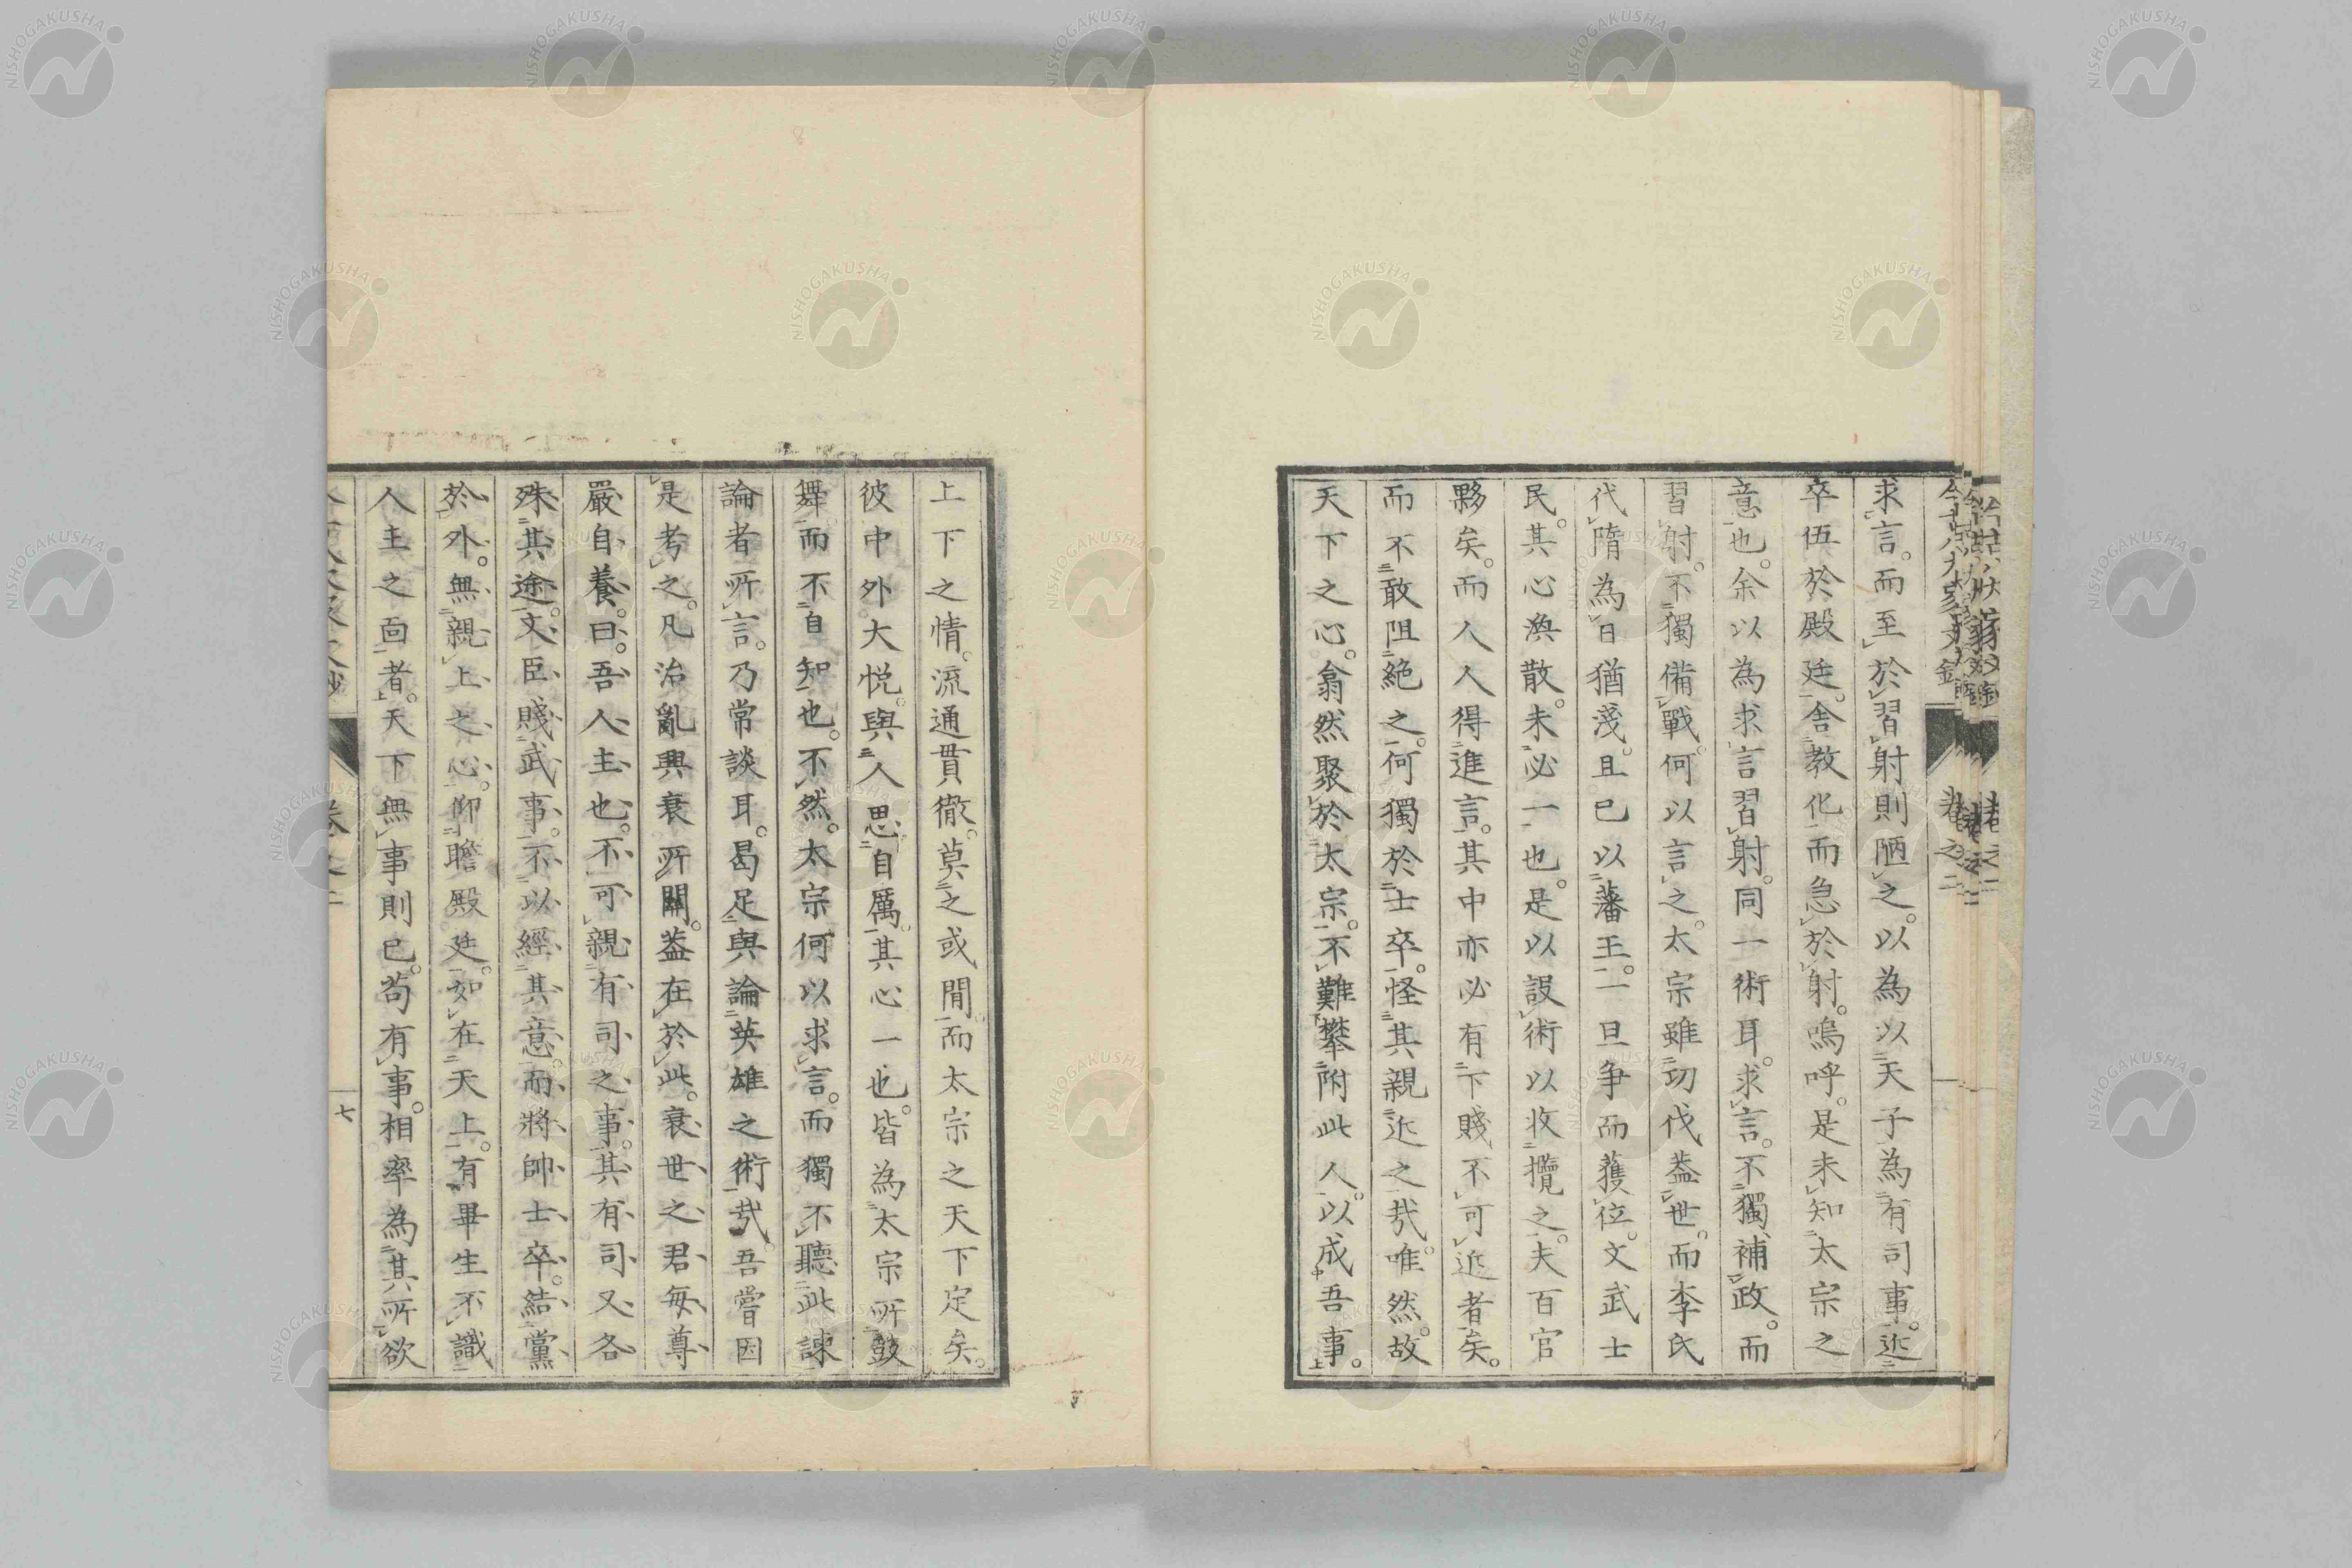 求言。而至於習射則陋之。以為以天子為有司事。近
卒伍於殿廷。舎教化而急於射。嗚呼。是未知太宗之
意也。余以為求言習射。同一術耳。求言。不獨補政。而
習射。不獨備戰。何以言之。太宗雖功伐蓋世。而李氏
代隋為日猶淺。且已以藩王。一旦争而獲位。文武士
民。其心渙散。未必一也。是以設術以收攬之。夫百官
夥矣。而人人得進言。其中亦必有下賤不可近者矣。
而不敢阻絶之。何獨於士卒。怪其親近之哉。唯然。故
天下之心。翕然聚於太宗。不難攀附此人。以成吾事。
上下之情。流通貫徹。莫之或間。而太宗之天下定矣。
彼中外大悦。與人思自厲。其心一也。皆為太宗所鼓
舞而不自知也。不然。太宗何以求言。而獨不聽此諫
論者所言。乃常談耳。曷足與論英雄之術哉。吾嘗因
是考之。凡治亂興衰所關。蓋在於此。衰世之君。每尊
嚴自養。曰。吾人主也。不可親有司之事。其有司又各
殊其途。文臣賤武事。不以經其意。而將帥士卒。結黨
於外。無親上之心。仰瞻殿廷。如在天上。有畢生不識
人主之面者。天下無事則已。苟有事。相率為其所欲
卷之二
七